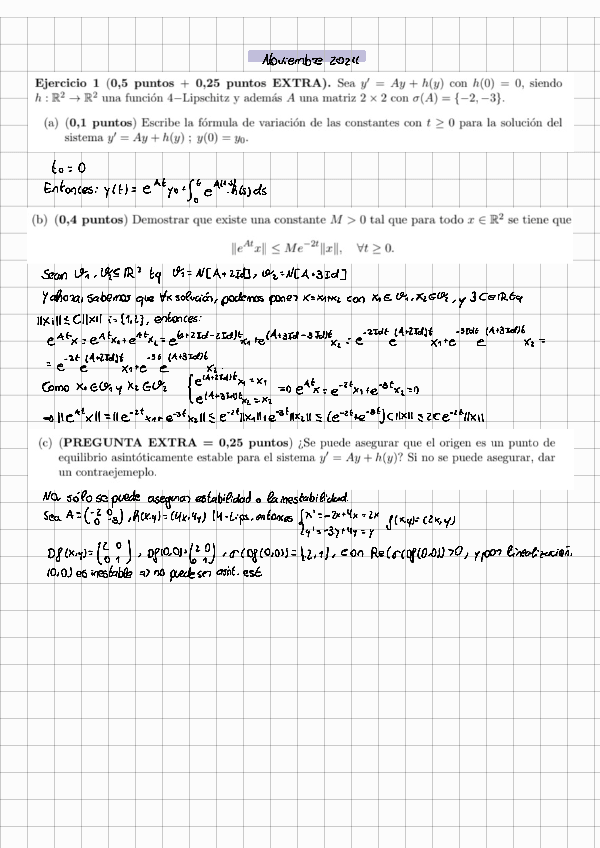 Noviembre 2024
Ejercicio 1 (0,5 puntos + 0,25 puntos EXTRA). Sea y′ = Ay + h(y) con h(0) = 0, siendo
h : ℝ² → ℝ² una función 4−Lipschitz y además A una matriz 2 × 2 con σ(A) = {−2, −3}.
(a) (0,1 puntos) Escribe la fórmula de variación de las constantes con t ≥ 0 para la solución del
sistema y′ = Ay + h(y) ; y(0) = y₀.
t₀ = 0
Entonces: y(t) = e^{At} y₀ + ∫₀ᵗ e^{A(t-s)} h(s) ds
(b) (0,4 puntos) Demostrar que existe una constante M > 0 tal que para todo x ∈ ℝ² se tiene que
‖e^{At}x‖ ≤ Me^{−2t}‖x‖, ∀t ≥ 0.
Sean V₁, V₂ ⊆ ℝ² tq V₁ = N[A+2Id], V₂ = N[A+3Id]
Y ahora, sabemos que ∀x solución, podemos poner x = x₁+x₂ con x₁ ∈ V₁, x₂ ∈ V₂, y ∃ C ∈ ℝ tq
‖xᵢ‖ ≤ C‖x‖ i = {1,2}, entonces:
e^{At}x = e^{At}x₁ + e^{At}x₂ = e^{(A+2Id-2Id)t}x₁ + e^{(A+3Id-3Id)t}x₂ = e^{-2Idt} e^{(A+2Id)t} x₁ + e^{-3Idt} e^{(A+3Id)t} x₂ =
= e^{-2t} e^{(A+2Id)t} x₁ + e^{-3t} e^{(A+3Id)t} x₂
Como x₁ ∈ V₁ y x₂ ∈ V₂ { e^{(A+2Id)t} x₁ = x₁ e^{(A+3Id)t} x₂ = x₂ ⇒ e^{At}x = e^{-2t}x₁ + e^{-3t}x₂ ⇒
⇒ ‖e^{At}x‖ = ‖e^{-2t}x₁ + e^{-3t}x₂‖ ≤ e^{-2t}‖x₁‖ + e^{-3t}‖x₂‖ ≤ (e^{-2t} + e^{-3t}) C‖x‖ ≤ 2C e^{-2t}‖x‖
(c) (PREGUNTA EXTRA = 0,25 puntos) ¿Se puede asegurar que el origen es un punto de
equilibrio asintóticamente estable para el sistema y′ = Ay + h(y)? Si no se puede asegurar, dar
un contraejemeplo.
No, sólo se puede asegurar estabilidad o la inestabilidad.
Sea A = (-2 0 0 -3), h(x,y) = (4x,4y) 4-Lips, entonces { x' = -2x+4x = 2x y' = -3y+4y = y f(x,y) = (2x,y)
Df(x,y) = (2 0 0 1), Df(0,0) = (2 0 0 1), σ(Df(0,0)) = {2,1}, con Re(σ(Df(0,0))) > 0, y por linealización.
(0,0) es inestable ⇒ no puede ser asint. est